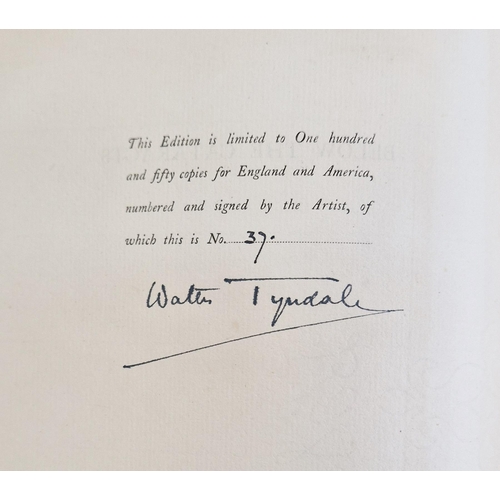 This Edition is limited to One hundred
and fifty copies for England and America,
numbered and signed by the Artist, of
which this is No. 37.
Walter Tyndale